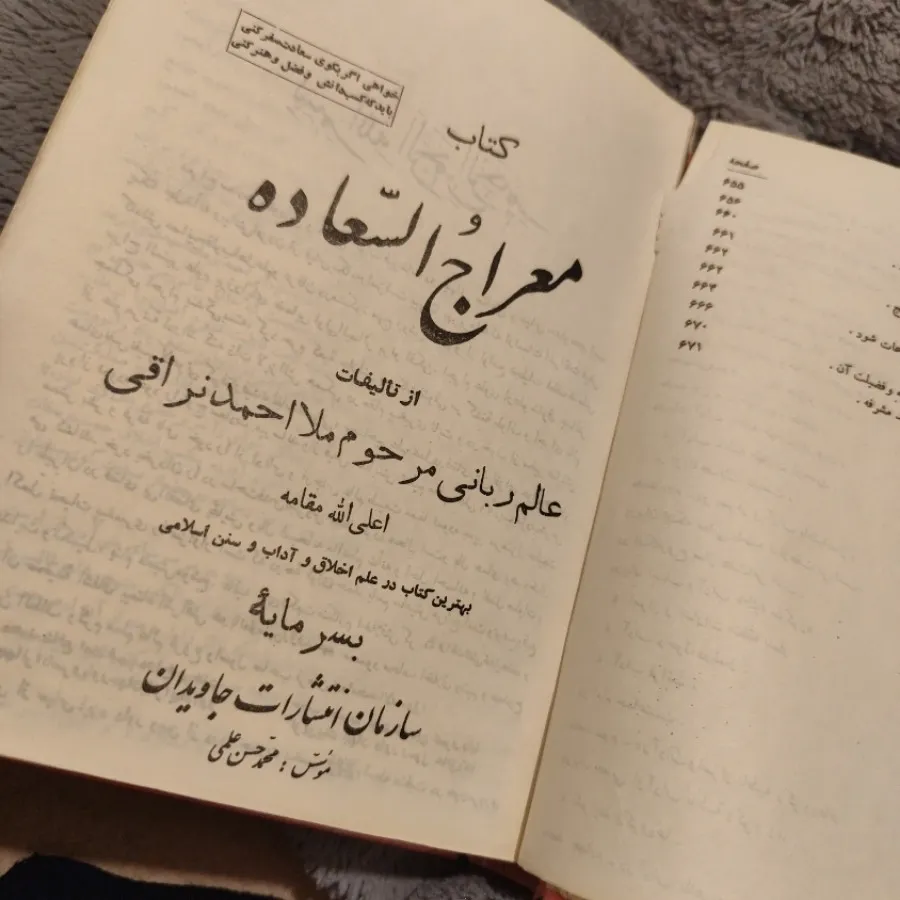 خواهی اگر بکوی سعادت سفر کنی
باید که کسب دانش و فضل و هنر کنی
کتاب
معراجُ السّعاده
از تالیفات
عالم ربانی مرحوم ملا احمد نراقی
اعلی الله مقامه
بهترین کتاب در علم اخلاق و آداب و سنن اسلامی
بسرمایهٔ
سازمان انتشارات جاویدان
مؤسّس : محمّد حسن علمی
صفحه
۶۵۵
۶۵۶
۶۶۰
۶۶۱
۶۶۲
۶۶۲
۶۶۳
۶۶۶
۶۷۰
۶۷۱
خود .
و فضیلت آن .